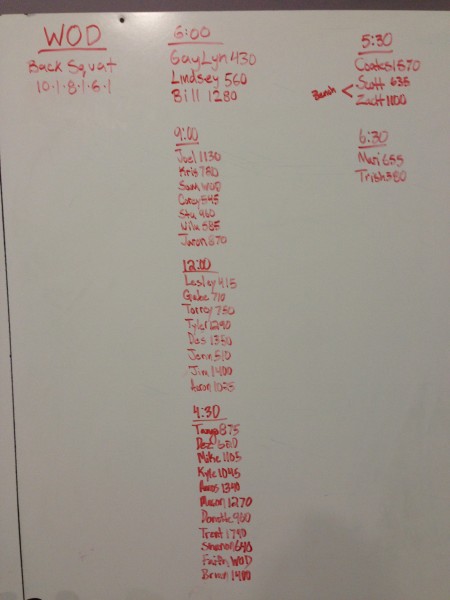 WOD
Back Squat
10·1·8·1·6·1
6:00
GayLyn 430
Lindsey 560
Bill 1280
9:00
Joel 1130
Kris 780
Sarah WOD
Corey 545
Stu 960
Will 585
Jason 870
12:00
Lesley 415
Gabe 710
Torrey 750
Tyler 1290
Das 1350
Jenn 510
Jim 1400
Aaron 1025
4:30
Tanya 875
Dez 680
Mike 1105
Kyle 1045
1340
Mason 1270
Danielle 900
Trent 1790
Shannon 640
Faith WOD
1400
5:30
Coates 1570
Scott 635
Bench < Zach 1100
6:30
Mari 655
Trish 380